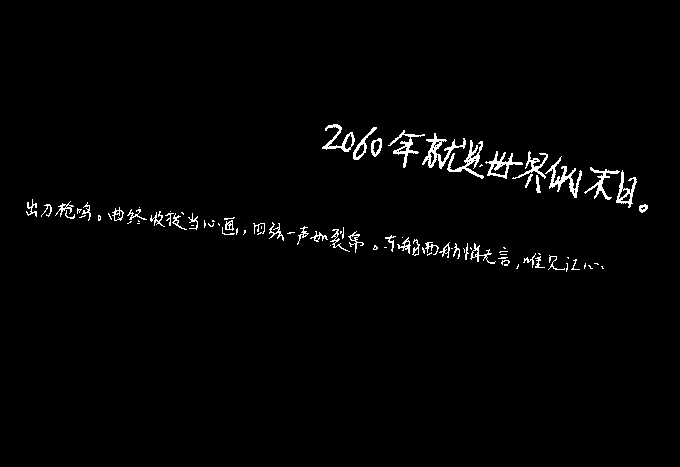 2060年就是世界的末日。
出刀枪鸣。曲终收拨当心画,四弦一声如裂帛。东船西舫悄无言,唯见江心